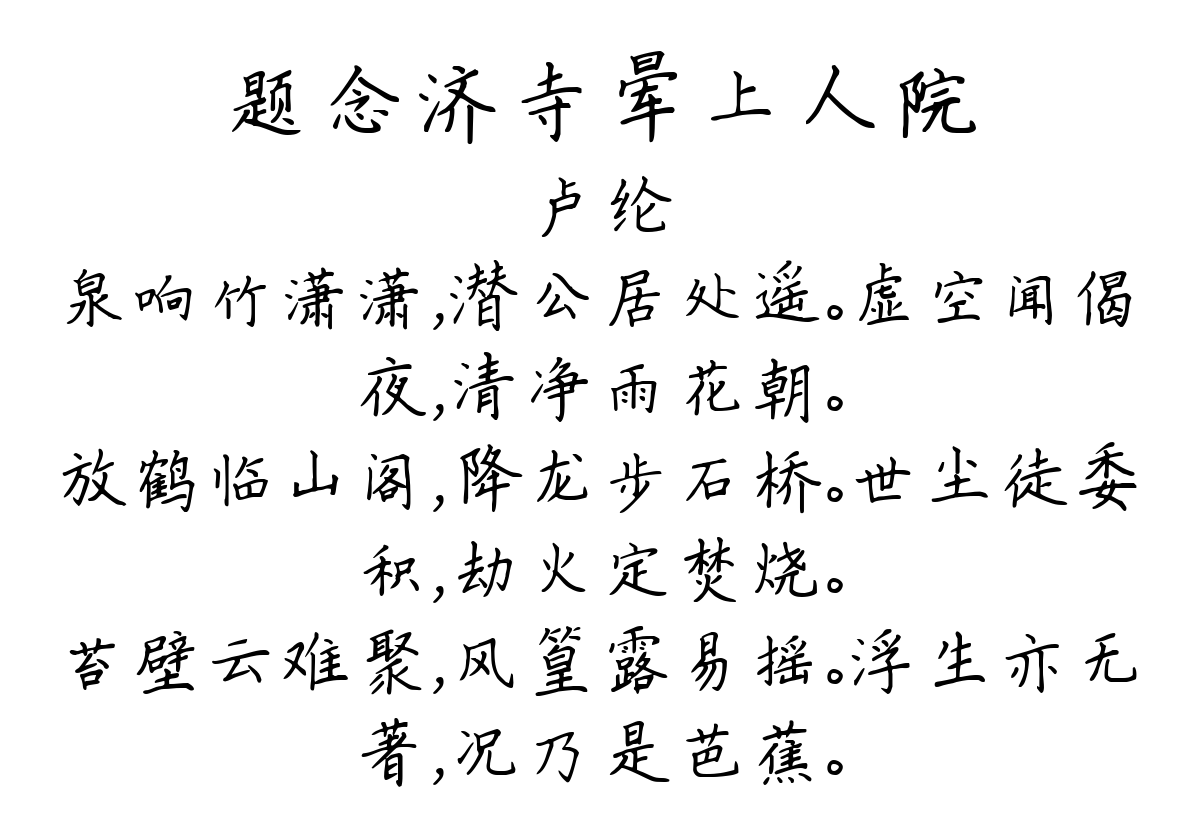 题念济寺晕上人院
卢纶
泉响竹潇潇,潜公居处遥。虚空闻偈
夜,清净雨花朝。
放鹤临山阁,降龙步石桥。世尘徒委
积,劫火定焚烧。
苔壁云难聚,风篁露易摇。浮生亦无
著,况乃是芭蕉。